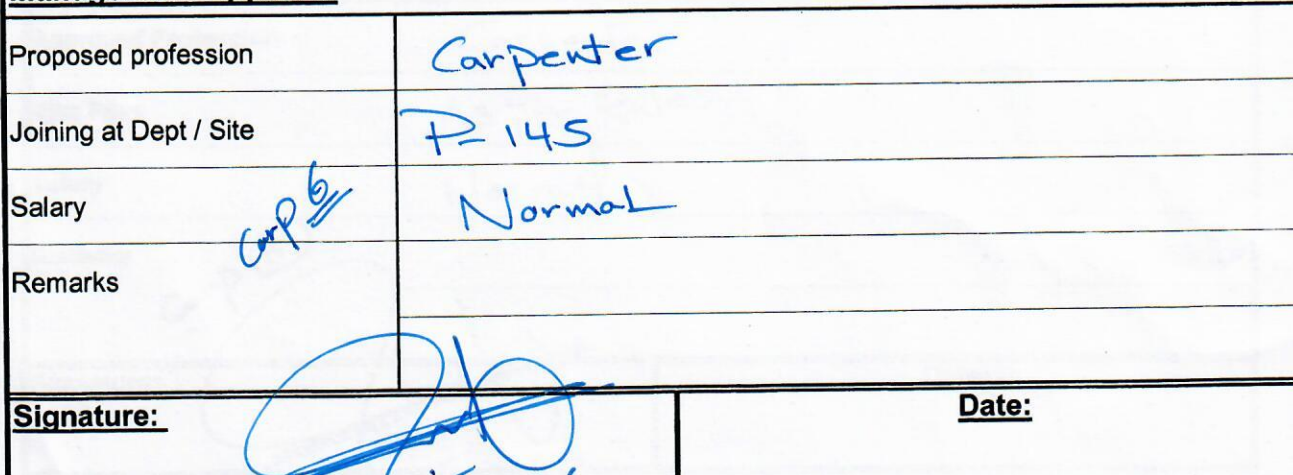 Proposed profession Carpenter
Joining at Dept / Site P-145
Salary Normal
Carp 6
Remarks
Signature: Date: